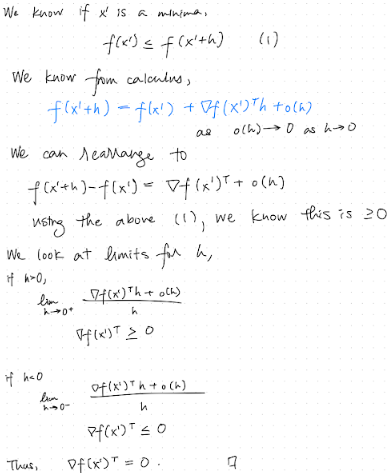 We know if x' is a minima,
f(x') ≤ f(x'+h) (1)
We know from calculus,
f(x'+h) = f(x') + ∇f(x')ᵀh + o(h)
as o(h) → 0 as h→0
We can rearrange to
f(x'+h) - f(x') = ∇f(x')ᵀ + o(h)
using the above (1), we know this is ≥0
We look at limits for h,
if h>0,
lim h→0⁺ ∇f(x')ᵀh + o(h) / h
∇f(x')ᵀ ≥ 0
if h<0
lim h→0⁻ ∇f(x')ᵀh + o(h) / h
∇f(x')ᵀ ≤ 0
Thus, ∇f(x')ᵀ = 0. □